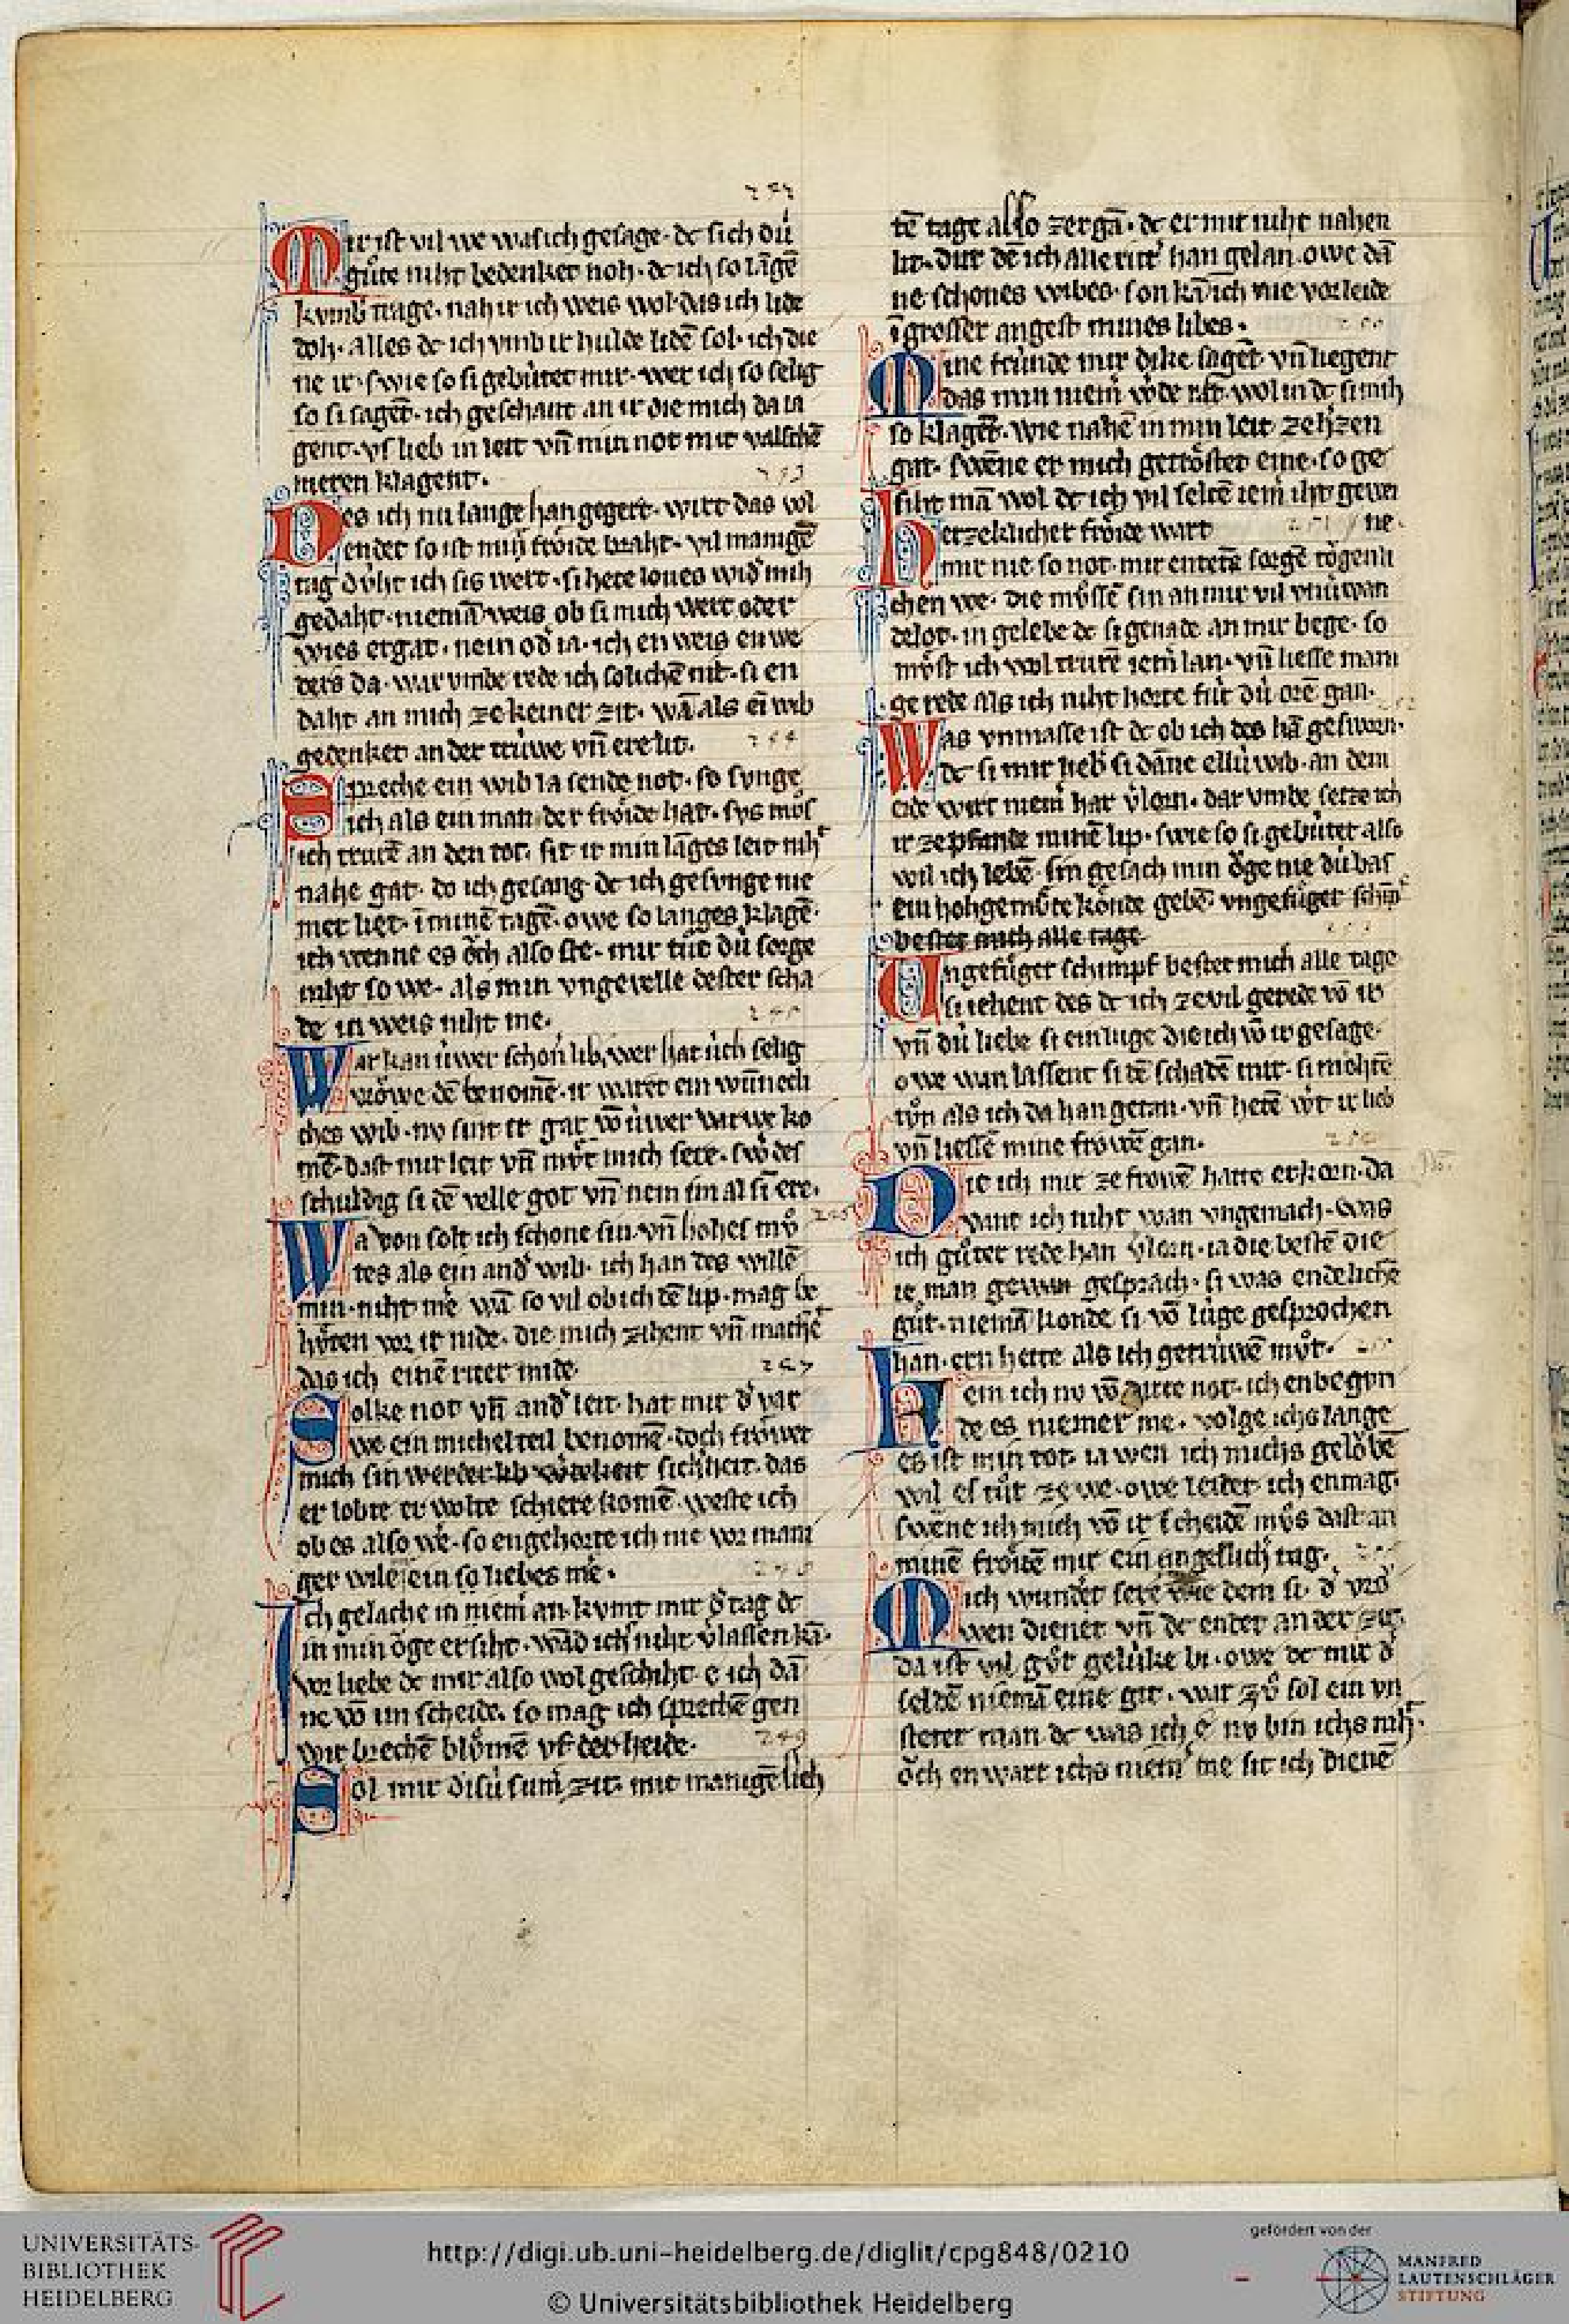 252
Mir ist vil we was ich gesage· dc sich dú
gůte niht bedenket noh· dc ich so lāgē
kvmb᾽ trage· nah ir ich weis wol das ich lide
doh· alles dc ich vmb ir hulde lidē sol· ich die
ne ir· swie so si gebútet mir· wer ich so selig
so si sagēt· ich geschant an ir die mich da ia
gent· vf lieb in leit vn̄ min not mit valschē
meren klagent·
253
Des ich nu lange han gegert· wirt das vol
endet so ist mir frŏide braht· vil manigē
tag dvht ich sis wert· si hete loues wid᾽ mih
gedaht· niemā weis ob si mich wert oder
wies ergat· nein od᾽ ia· ich en weis en we
ders da· war vmbe rede ich solichē nit· si en
daht an mich ze keiner zit· wā als ei wib
gedenket an der trúwe vn̄ ere lit·
254
Spreche ein wib la sende not· so synge
ich als ein man der frŏide hat· sys mŏs
ich trurē an den tot· sit ir min lāges leit niht
nahe gat· do ich gesang dc ich gesvnge nie
mer liet· ī minē tagē· owe so langes klagē·
ich wenne es ŏch also ste· mir tůt dú sorge
niht so we· als min vngevelle dester scha
de in weis niht me·
255
War kan úwer schon lib, wer hat úch selig
vrŏwe dē benomē· ir waret ein wūnech
ches wib· nv sint ir gar vō úwer varwe ko
mē· dast mir leit vn̄ mvt mich sere· sw᾽ des
schuldig si dē velle got vn̄ nem im al si ere·
256
Wa von solt ich schone sin· vn̄ hohes mv̊
tes als ein and᾽ wib· ich han des willē
min· niht me wā so vil ob ich dē lip· mag be
hvtten vor ir nide· die mich zihent vn̄ machēt
das ich einē riter mide·
257
Solke not vn̄ and᾽ leit· hat mir d᾽ var
we ein michel teil benomē· doch frŏwet
mich sin werder lib sich᾽heit· das
er lobte er wolte schiere komē· weste ich
ob es also we· so engehorte ich nie vor mani
ger wile ein so liebes me·
258
Ich gelache in niem᾽ an· kvmt mir d᾽ tag dc
in min ŏge ersiht· wād ich niht v᾽lassen kā·
vor liebe dc mir also wol geschiht· e ich dā
ne vō im scheide· so mag ich sprechē gen
wir brechē blv̊mē vf der heide·
259
Sol mir disú sum᾽ zit· mit manigē lich
tē tage also zergā· dc er mir niht nahen
lit· dur dē ich alle ritt᾽ han gelan· owe dā
ne schones wibes· son kā ich nie vor leide
ī grosser angest mines libes·
260
Mine frúnde mir dike sagēt vn̄ liegent
das min niem᾽ w᾽de rat· wol in dc si mih
so klagēt· wie nahē in min leit ze h᾽zen
gat· swēne er mich getrŏstet eine· so ge
siht mā wol dc ich vil seltē iem᾽ iht gewei
ne·
herzeklicher frŏide wart
261
mir nie so not· mir entetē sorgē tŏgenli
chen we· die mv̊ssē sin an mir vil vnúwan
delot· in gelebe dc si genade an mir bege· so
mv̊st ich wol trurē iem᾽ lan· vn̄ liesse mani
ge rede als ich niht horte fúr dú orē gan·
262
Was vnmasse ist dc ob ich des hā gesworn·
dc si mir lieb᾽ si dāne ellú wib· an dem
eide wirt niem᾽ har v᾽lorn· dar vmbe setze ich
ir ze pfande minē lip· swie so si gebútet also
wil ich lebē· sin gesach min ŏge nie dú bas
ein hohgemv̊te kŏnde gebē· vngefůget schīpf
bestet mich alle tage
Vngefůger schimpf bestet mich alle tage
si iehent des dc ich ze vil gerede vō ir
vn̄ dú liebe si ein luge die ich vō ir gesage·
owe wan lassent si dē schadē mir· si mohtē
tv̊n als ich da han getan· vn̄ hetē w᾽t ir lieb
vn̄ liessē mine frŏwē gan·
Die ich mir ze frowē hatte erkorn· da
vant ich niht wan vngemach· was
ich gůter rede han v᾽lorn· ia die bestē die
ie man gesprach· si was endelichē
gůt· niemā konde si vō lúge gesprochen
han· ern hette als ich getrúwē mv̊t·
ein ich nv vō dirre not· ich enbegvn
de es niemer me· volge ichs lange
es ist min tot· ia wen ich michs gelŏbē
wil es tůt ze we· owe leider ich enmag·
swēne ich mich vō ir scheidē mv̊s dast an
minē frŏidē mir ein angeslich tag·
Mich wundet sere wie dem si· d᾽ vro
wen dienet vn̄ dc endet an der zit·
da ist vil gv̊t gelúke bi· owe dc mir d᾽
seldē niemā eine git· war zv̊ sol ein vn
steter man dc was ich e nv bin ichs niht·
ŏch en wart ichs niem᾽ me sit ich dienē
UNIVERSITÄTS-
BIBLIOTHEK
HEIDELBERG
http://digi.ub.uni-heidelberg.de/diglit/cpg848/0210
© Universitätsbibliothek Heidelberg
gefördert von der
MANFRED
LAUTENSCHLÄGER
STIFTUNG